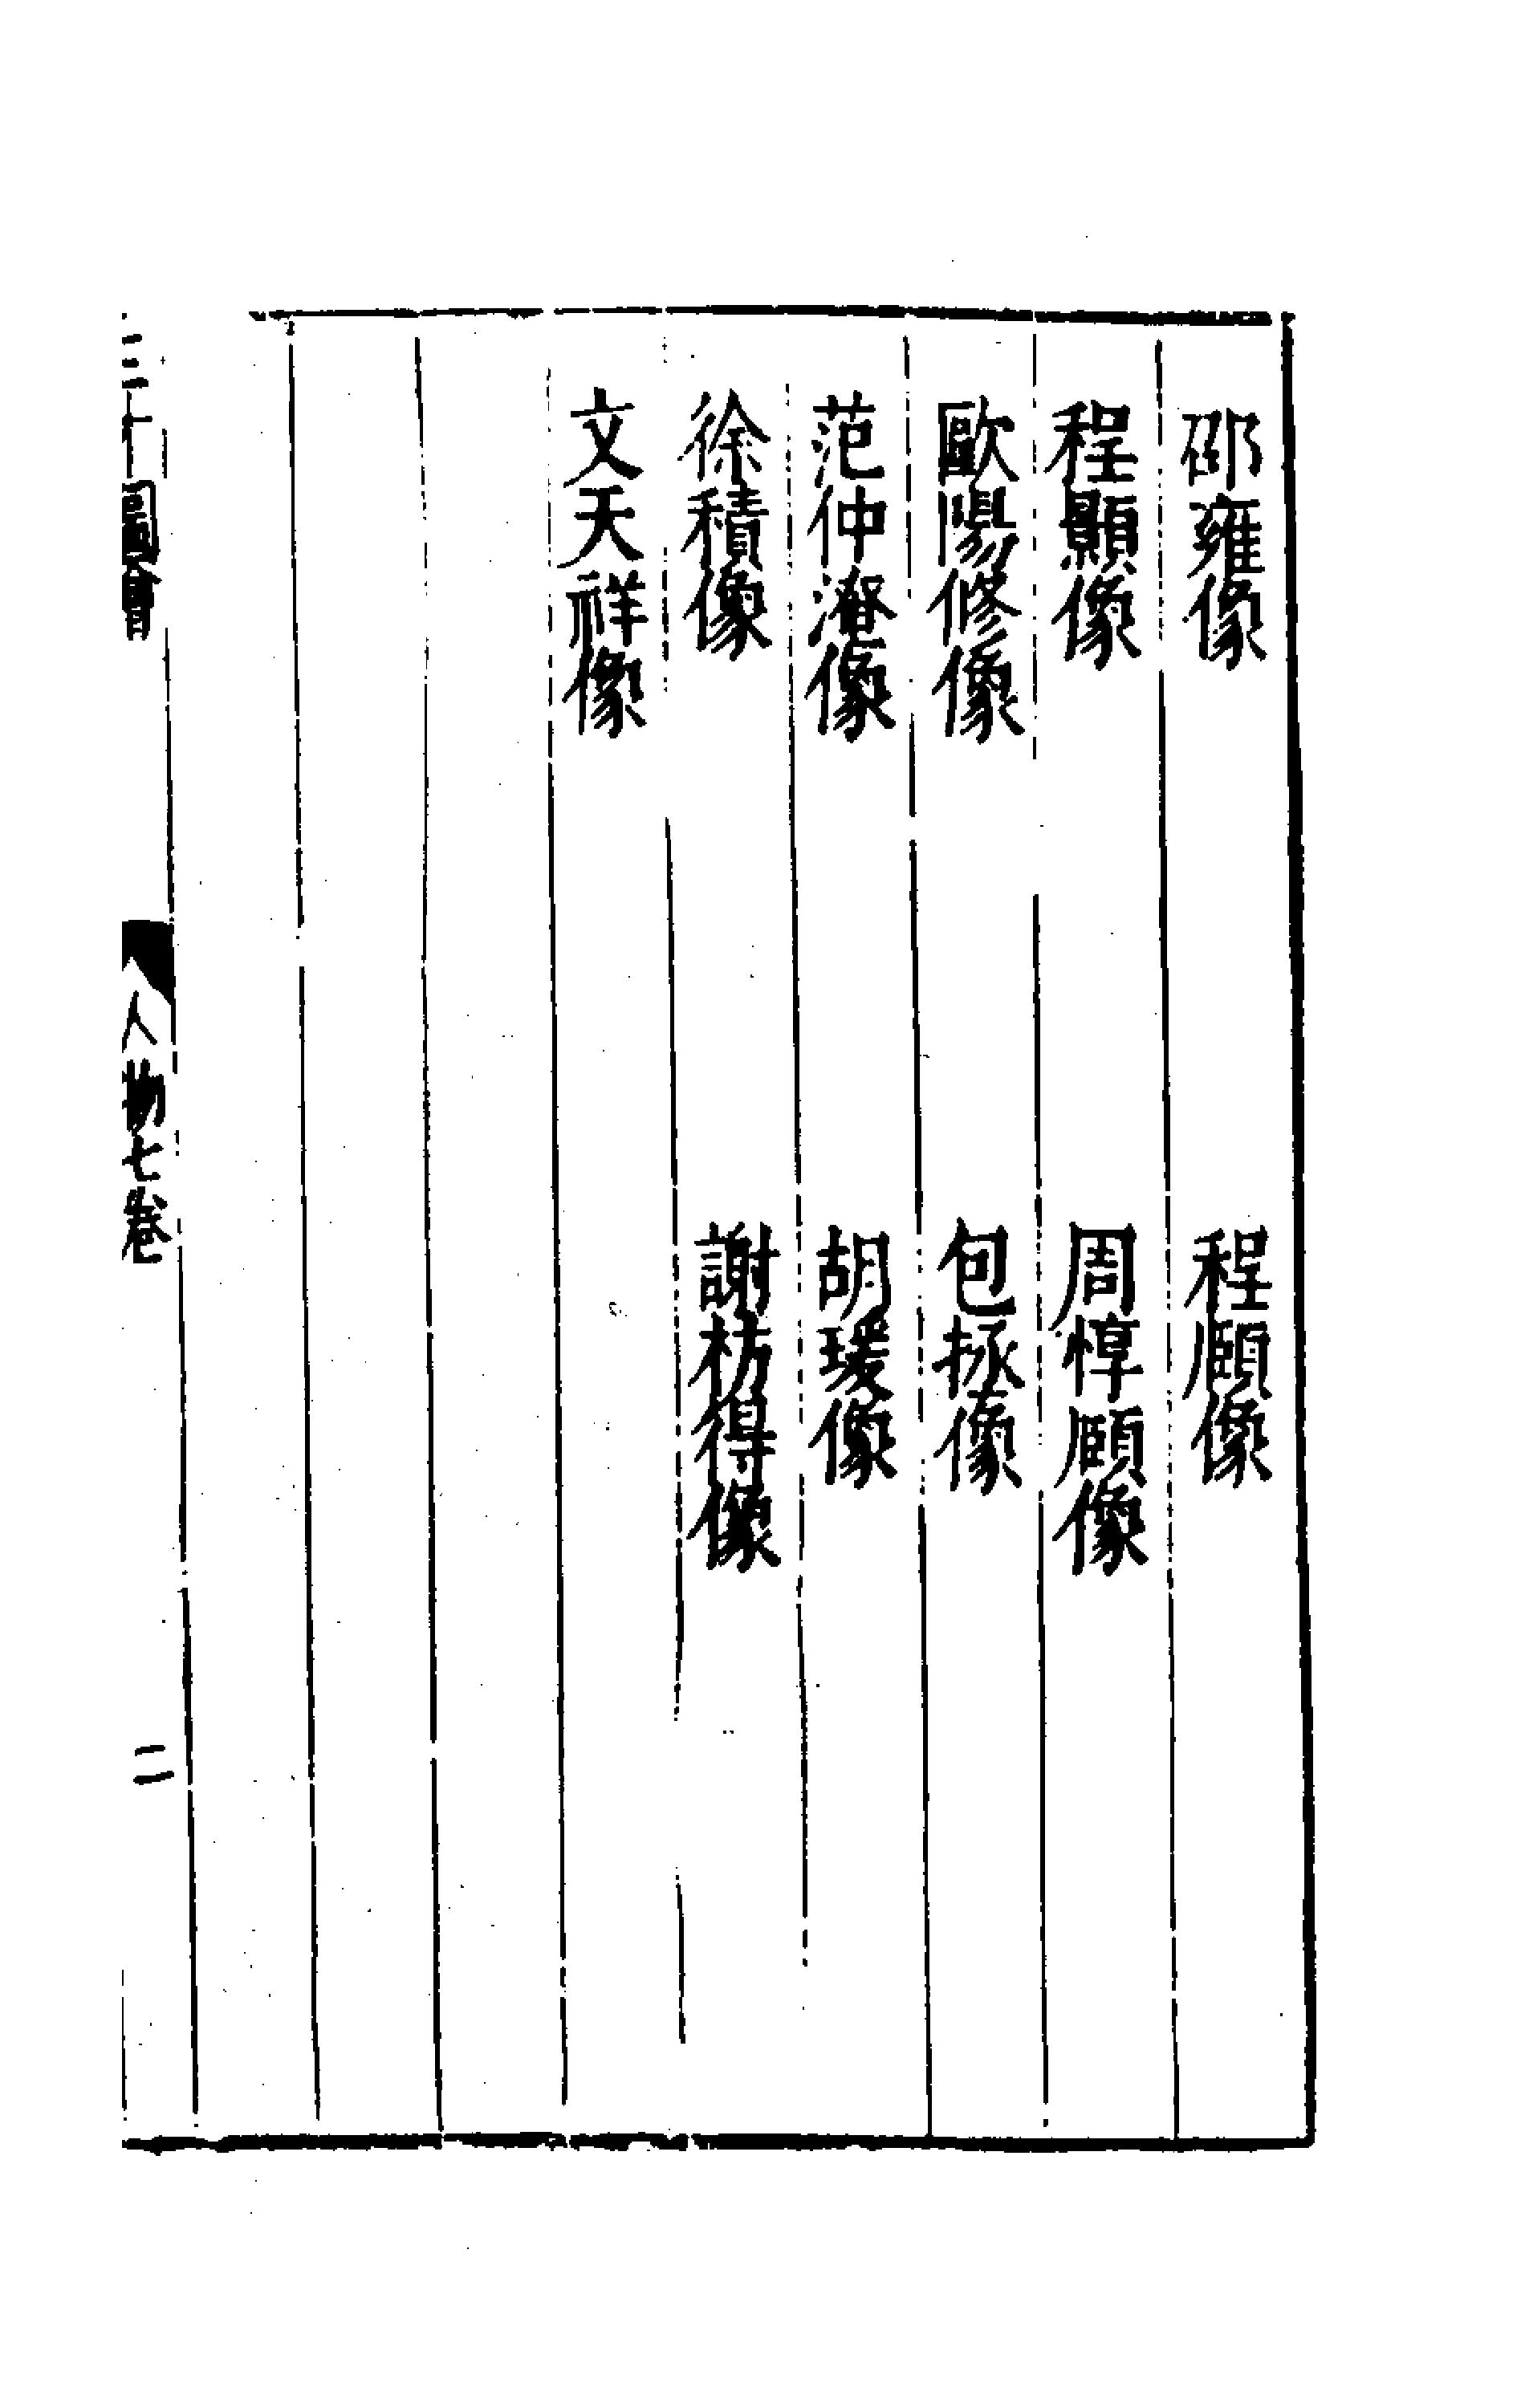 邵雍像　程頤像
程顥像　周惇頤像
歐陽修像　包拯像
范仲淹像　胡瑗像
徐積像　謝枋得像
文天祥像
三才圖會　人物七卷　二